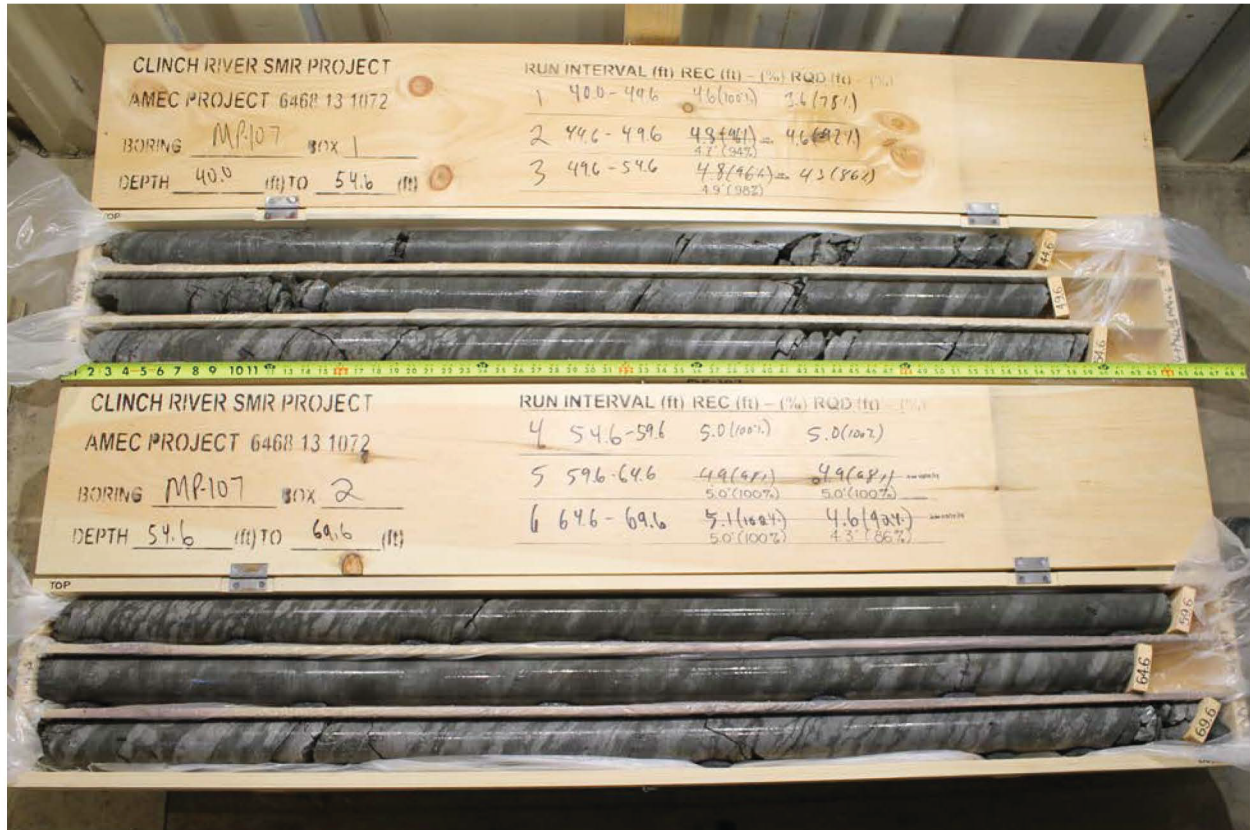 CLINCH RIVER SMR PROJECT
AMEC PROJECT 6468 13 1072
BORING MP-107 BOX 1
DEPTH 40.0 (ft) TO 54.6 (ft)
RUN INTERVAL (ft) REC (ft) - (%) RQD (ft) - (%)
1 40.0 - 44.6 4.6 (100%) 3.6 (78%)
2 44.6 - 49.6 4.8 (96%) 4.6 (92%)
4.7' (94%)
3 49.6 - 54.6 4.8 (96%) 4.3 (86%)
4.9' (98%)
TOP
44.6
49.6
54.6
1 2 3 4 5 6 7 8 9 10 11
CLINCH RIVER SMR PROJECT
AMEC PROJECT 6468 13 1072
BORING MP-107 BOX 2
DEPTH 54.6 (ft) TO 69.6 (ft)
RUN INTERVAL (ft) REC (ft) - (%) RQD (ft) - (%)
4 54.6 - 59.6 5.0 (100%) 5.0 (100%)
5 59.6 - 64.6 4.9 (98%) 4.9 (98%)
5.0' (100%) 5.0' (100%)
6 64.6 - 69.6 5.1 (102%) 4.6 (92%)
5.0' (100%) 4.3' (86%)
TOP
59.6
64.6
69.6